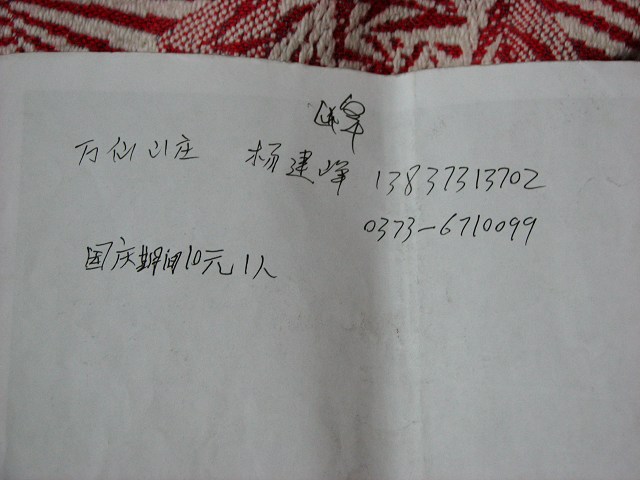 万仙山庄 杨建峰 13837313702
0373-6710099
国庆期间10元1人